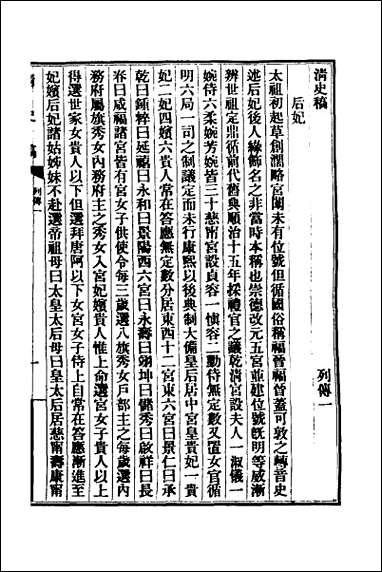 清史稿
列傳一
后妃
太祖初起草創闊略宮闈未有位號但循國俗稱福晉福晉蓋可敦之轉音史
述后妃後人緣飾名之非當時本稱也崇德改元五宮並建位號旣明等威漸
辨世祖定鼎循前代舊典順治十五年採禮官之議乾淸宮設夫人一淑儀一
婉侍六柔婉芳婉皆三十慈甯宮設貞容一愼容二勤侍無定數又置女官循
明六局一司之制議定而未行康熙以後典制大備皇后居中宮皇貴妃一貴
妃二妃四嬪六貴人常在答應無定數分居東西十二宮東六宮曰景仁曰承
乾曰鍾粹曰延禧曰永和曰景陽西六宮曰永壽曰翊坤曰儲秀曰啟祥曰長
春曰咸福諸宮皆有宮女子供使令每三歲選八旗秀女戶部主之每歲選內
務府屬旗秀女內務府主之秀女入宮妃嬪貴人惟上命選宮女子貴人以上
得選世家女貴人以下但選拜唐阿以下女宮女子侍上自常在答應漸進至
妃嬪后妃諸姑姊妹不赴選帝祖母曰太皇太后母曰皇太后居慈甯壽康甯
列傳一
一